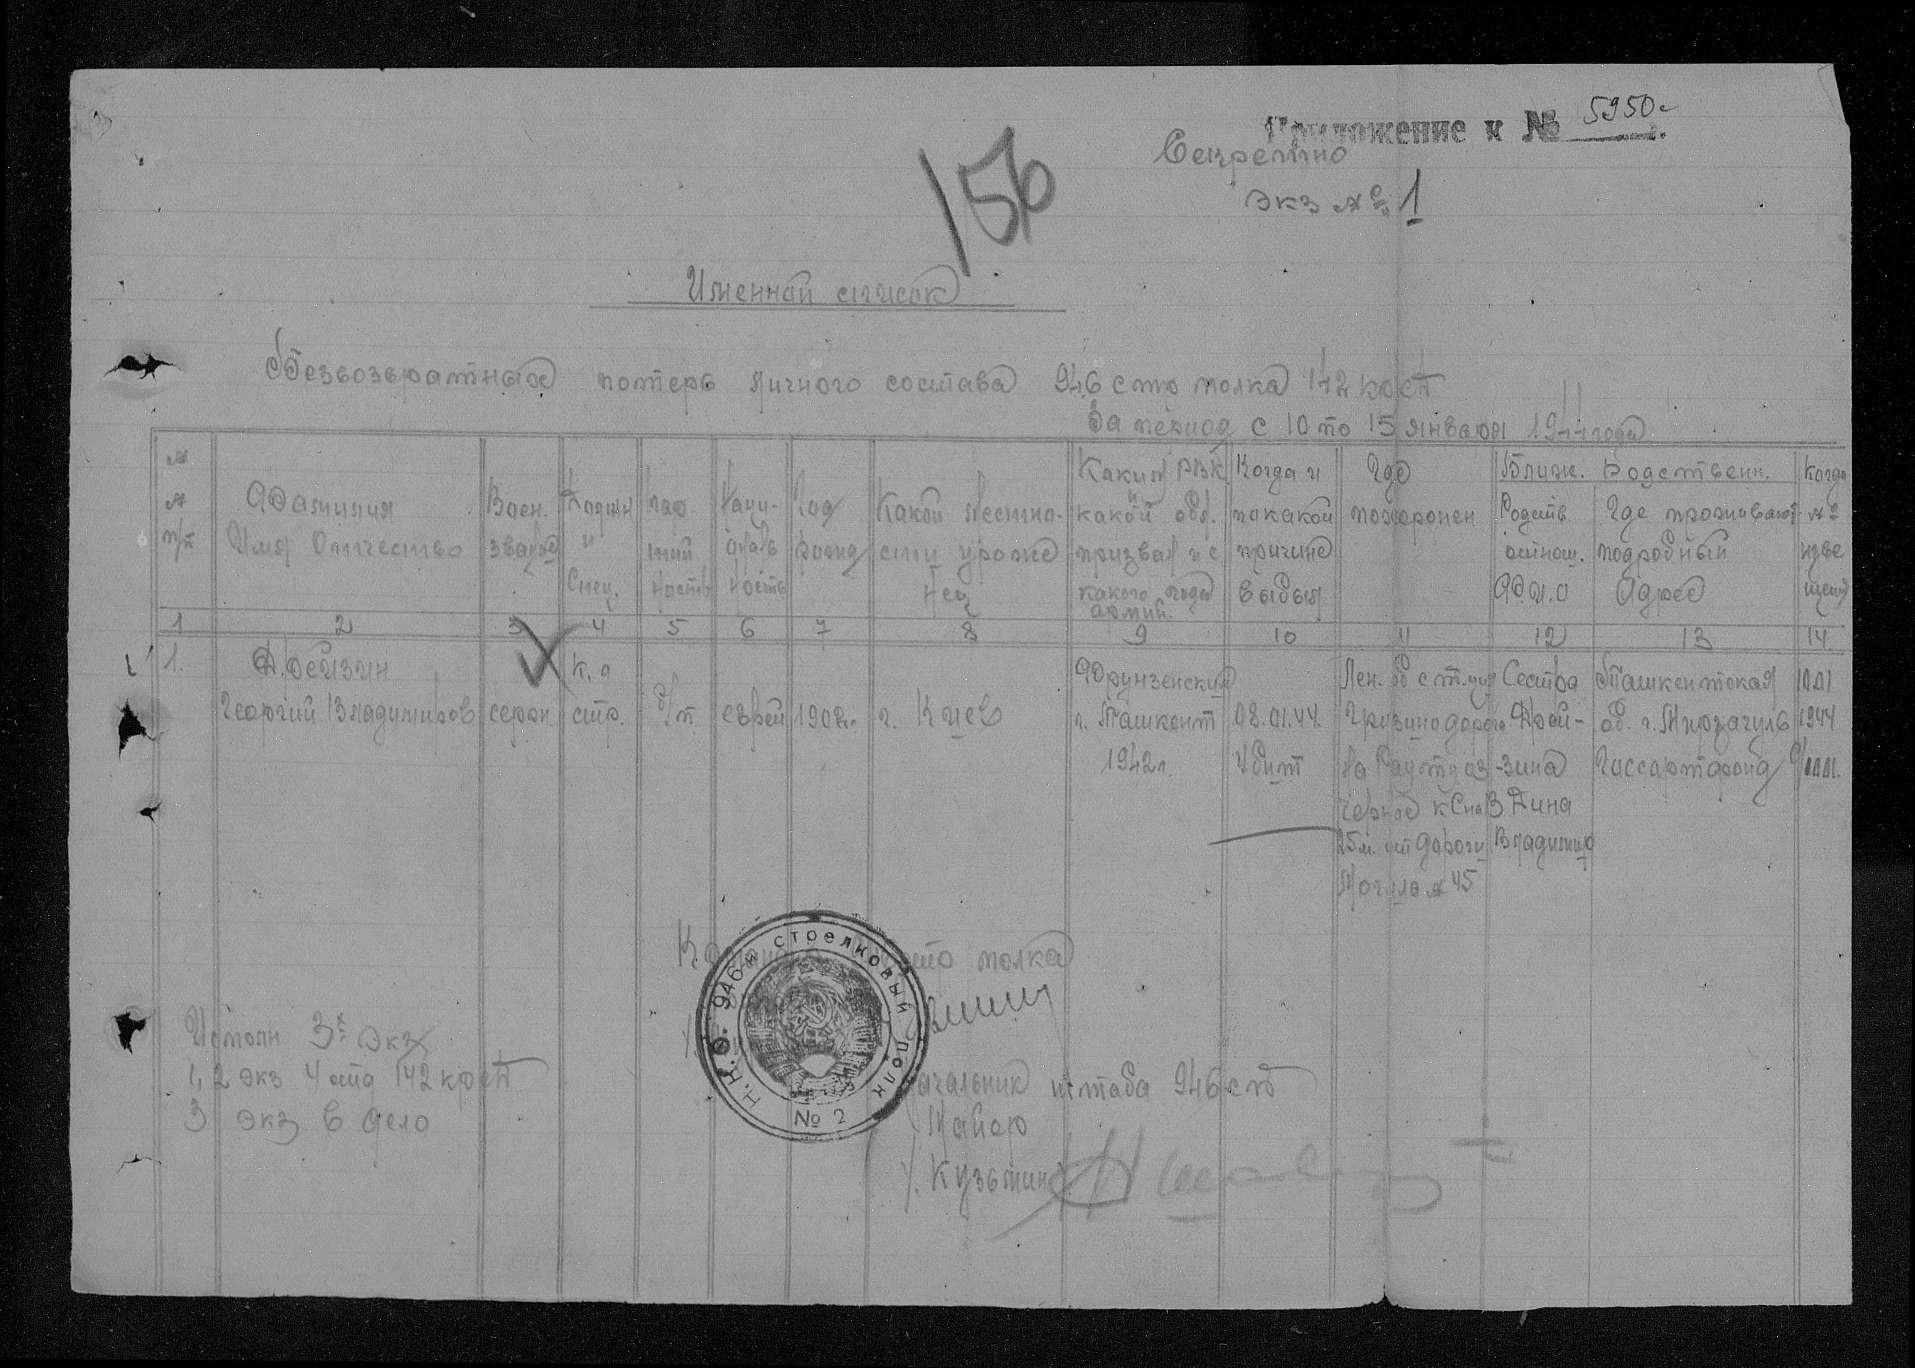 Приложение к № 5950с
Секретно
экз № 1
156
Именной список
безвозвратных потерь личного состава 946 стр полка 142 ксд
За период с 10 по 15 января 1944 года
№ № п/п
Фамилия Имя Отчество
Воен. звание
Должн и Спец.
пар тий ность
Наци- ональ ность
Год рожд
Какой местно- сти уроже нец
Каким РВК и какой обл. призван и с какого года в армии.
Когда и по какой причине выбыл
Где похоронен
Ближ. Родственн.
Родств отнош. Ф.И.О
Где проживают подробный Адрес
Когда № изве щения
1 2 3 4 5 6 7 8 9 10 11 12 13 14
1.
Георгий Владимиров
сержан
К.о стр.
б/п.
еврей
1908г.
г. Киев
Фрунзенским г. Ташкент 1942г.
08.01.44. Убит
Лен. об
25 м. от дороги
Могила № 45
Сестра
Дина Владимир
Ташкентская об. г. Мирзачуль
1944
Командир полка
Начальник штаба 946 сп
Майор
/. Кузьмин
Н.К.О. 946й стрелковый полк
№ 2
Исполн 3х экз
1,2 экз 4 отд 142 ксд
3 экз в дело